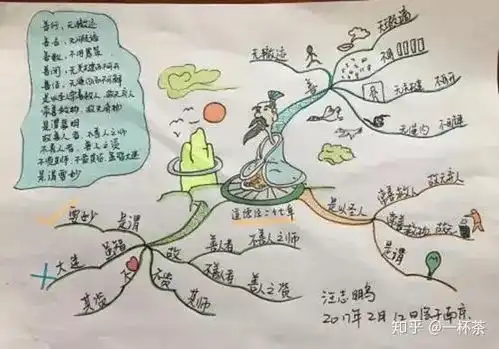 善行，无辙迹
善言，无瑕谪
善数，不用筹策
善闭，无关键而不可开
善结，无绳约而不可解
是以圣人常善救人，故无弃人
常善救物，故无弃物
是谓袭明
故善人者，不善人之师
不善人者，善人之资
不贵其师，不爱其资，虽智大迷
是谓要妙
无瑕谪
无辙迹
不用
善
无关键
不可开
无绳约
道德经二十七章
是以圣人
常善救人
故无弃人
常善救物
故无弃物
是谓
要妙
是谓
虽智
大迷
不
其资
故
善人者
不善人之师
不善者
善人之资
不贵
其师
汪志鹏
2017年2月12日于南京
知乎 @一杯茶